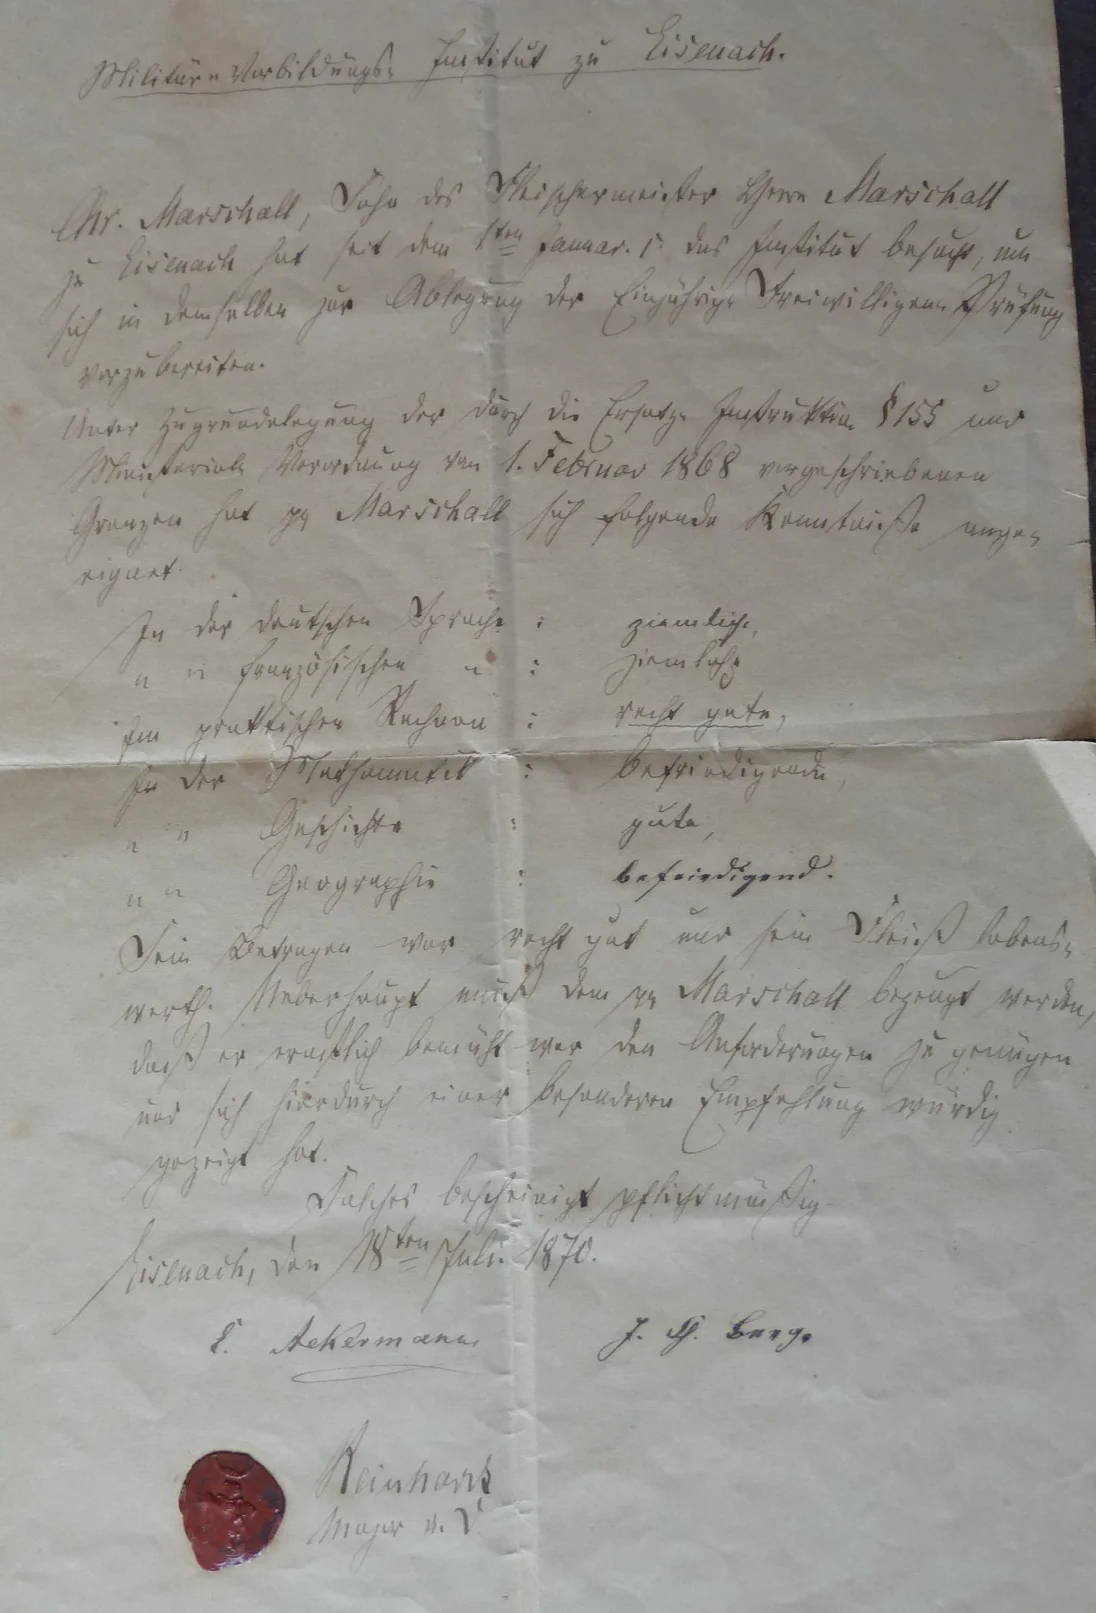 Militär-Vorbildungs-Institut zu Eisenach.
Chr. Marschall, Sohn des Fleischermeister Herrn Marschall
zu Eisenach hat seit dem 1ten Januar. c. das Institut besucht, um
sich in demselben zur Ablegung der Einjährig-Freiwilligen-Prüfung
vorzubereiten.
Unter Zugrundelegung der durch die Ersatz-Instruktion §155 und
Ministerial-Verordnung vom 1. Februar 1868 vorgeschriebenen
Grenzen hat pp Marschall sich folgende Kenntniße ange-
eignet.
In der deutschen Sprache : ziemliche,
" " französischen " : ziemliche
Im praktischen Rechnen : recht gute,
In der Mathematik : befriedigende,
" " Geschichte : gute,
" " Geographie : befriedigend.
Sein Betragen war recht gut und sein Fleiß lobens-
werth. Ueberhaupt muß dem pp Marschall bezeugt werden,
daß er ernstlich bemüht war den Anforderungen zu genügen
und sich hierdurch einer besonderen Empfehlung würdig
gezeigt hat.
Solches bescheinigt pflichtmäßig
Eisenach, den 18ten Juli 1870.
E. Ackermann. J. H. Berg.
Reinhard
Major a. D.